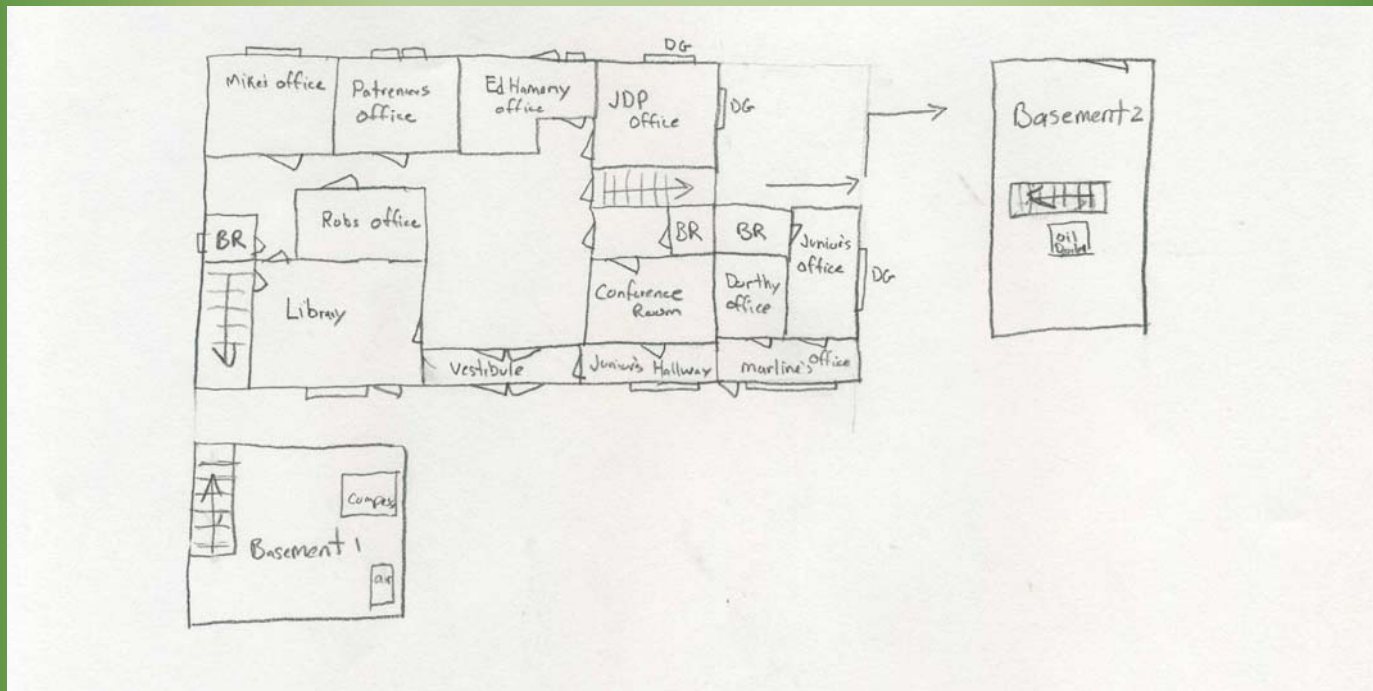 DG
Mike's office
Ed Hamany
office
JDP
Office
DG
Basement 2
office
Robs office
BR
BR
BR
Juniur's
office
DG
oil
Library
Conference
Room
Dorthy
office
Vestibule
Juniur's Hallway
marline's office
Basement 1
air